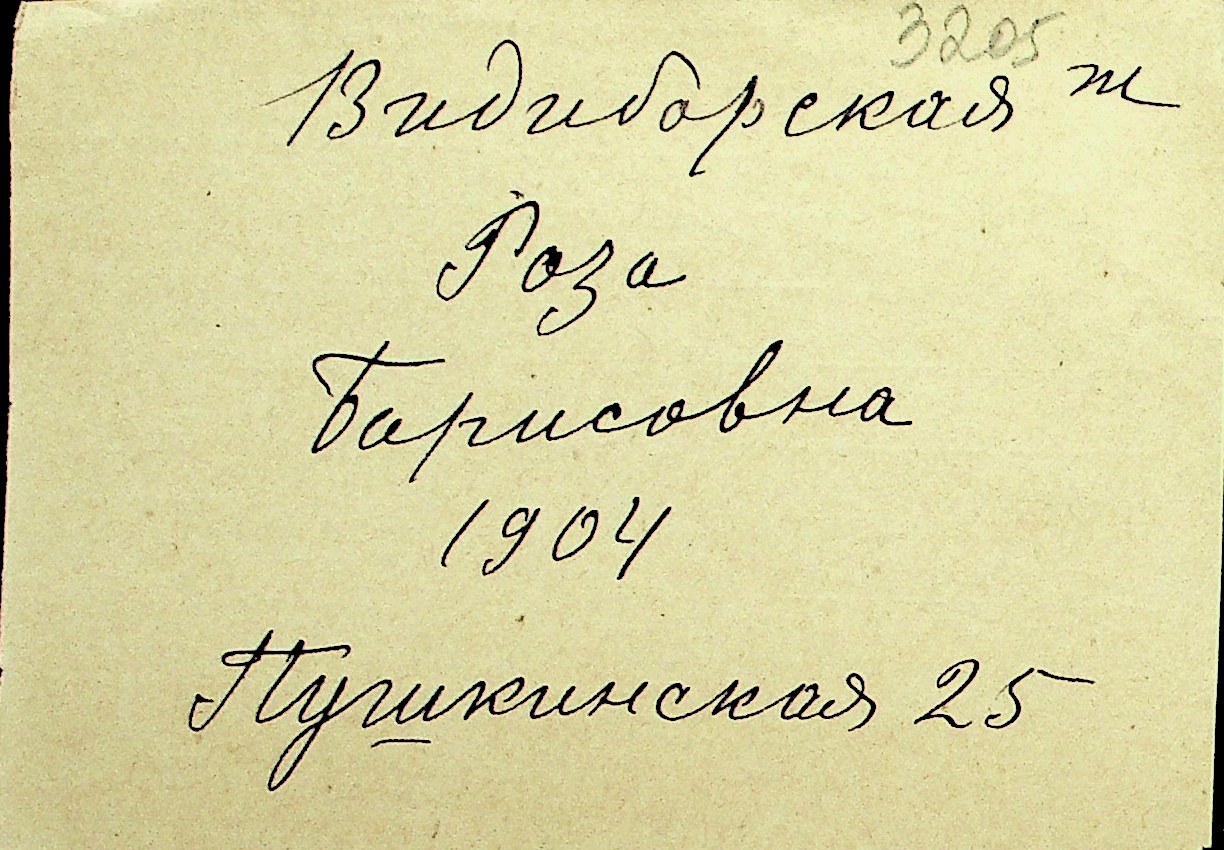 3205
Видиборская т
Роза
Борисовна
1904
Пушкинская 25